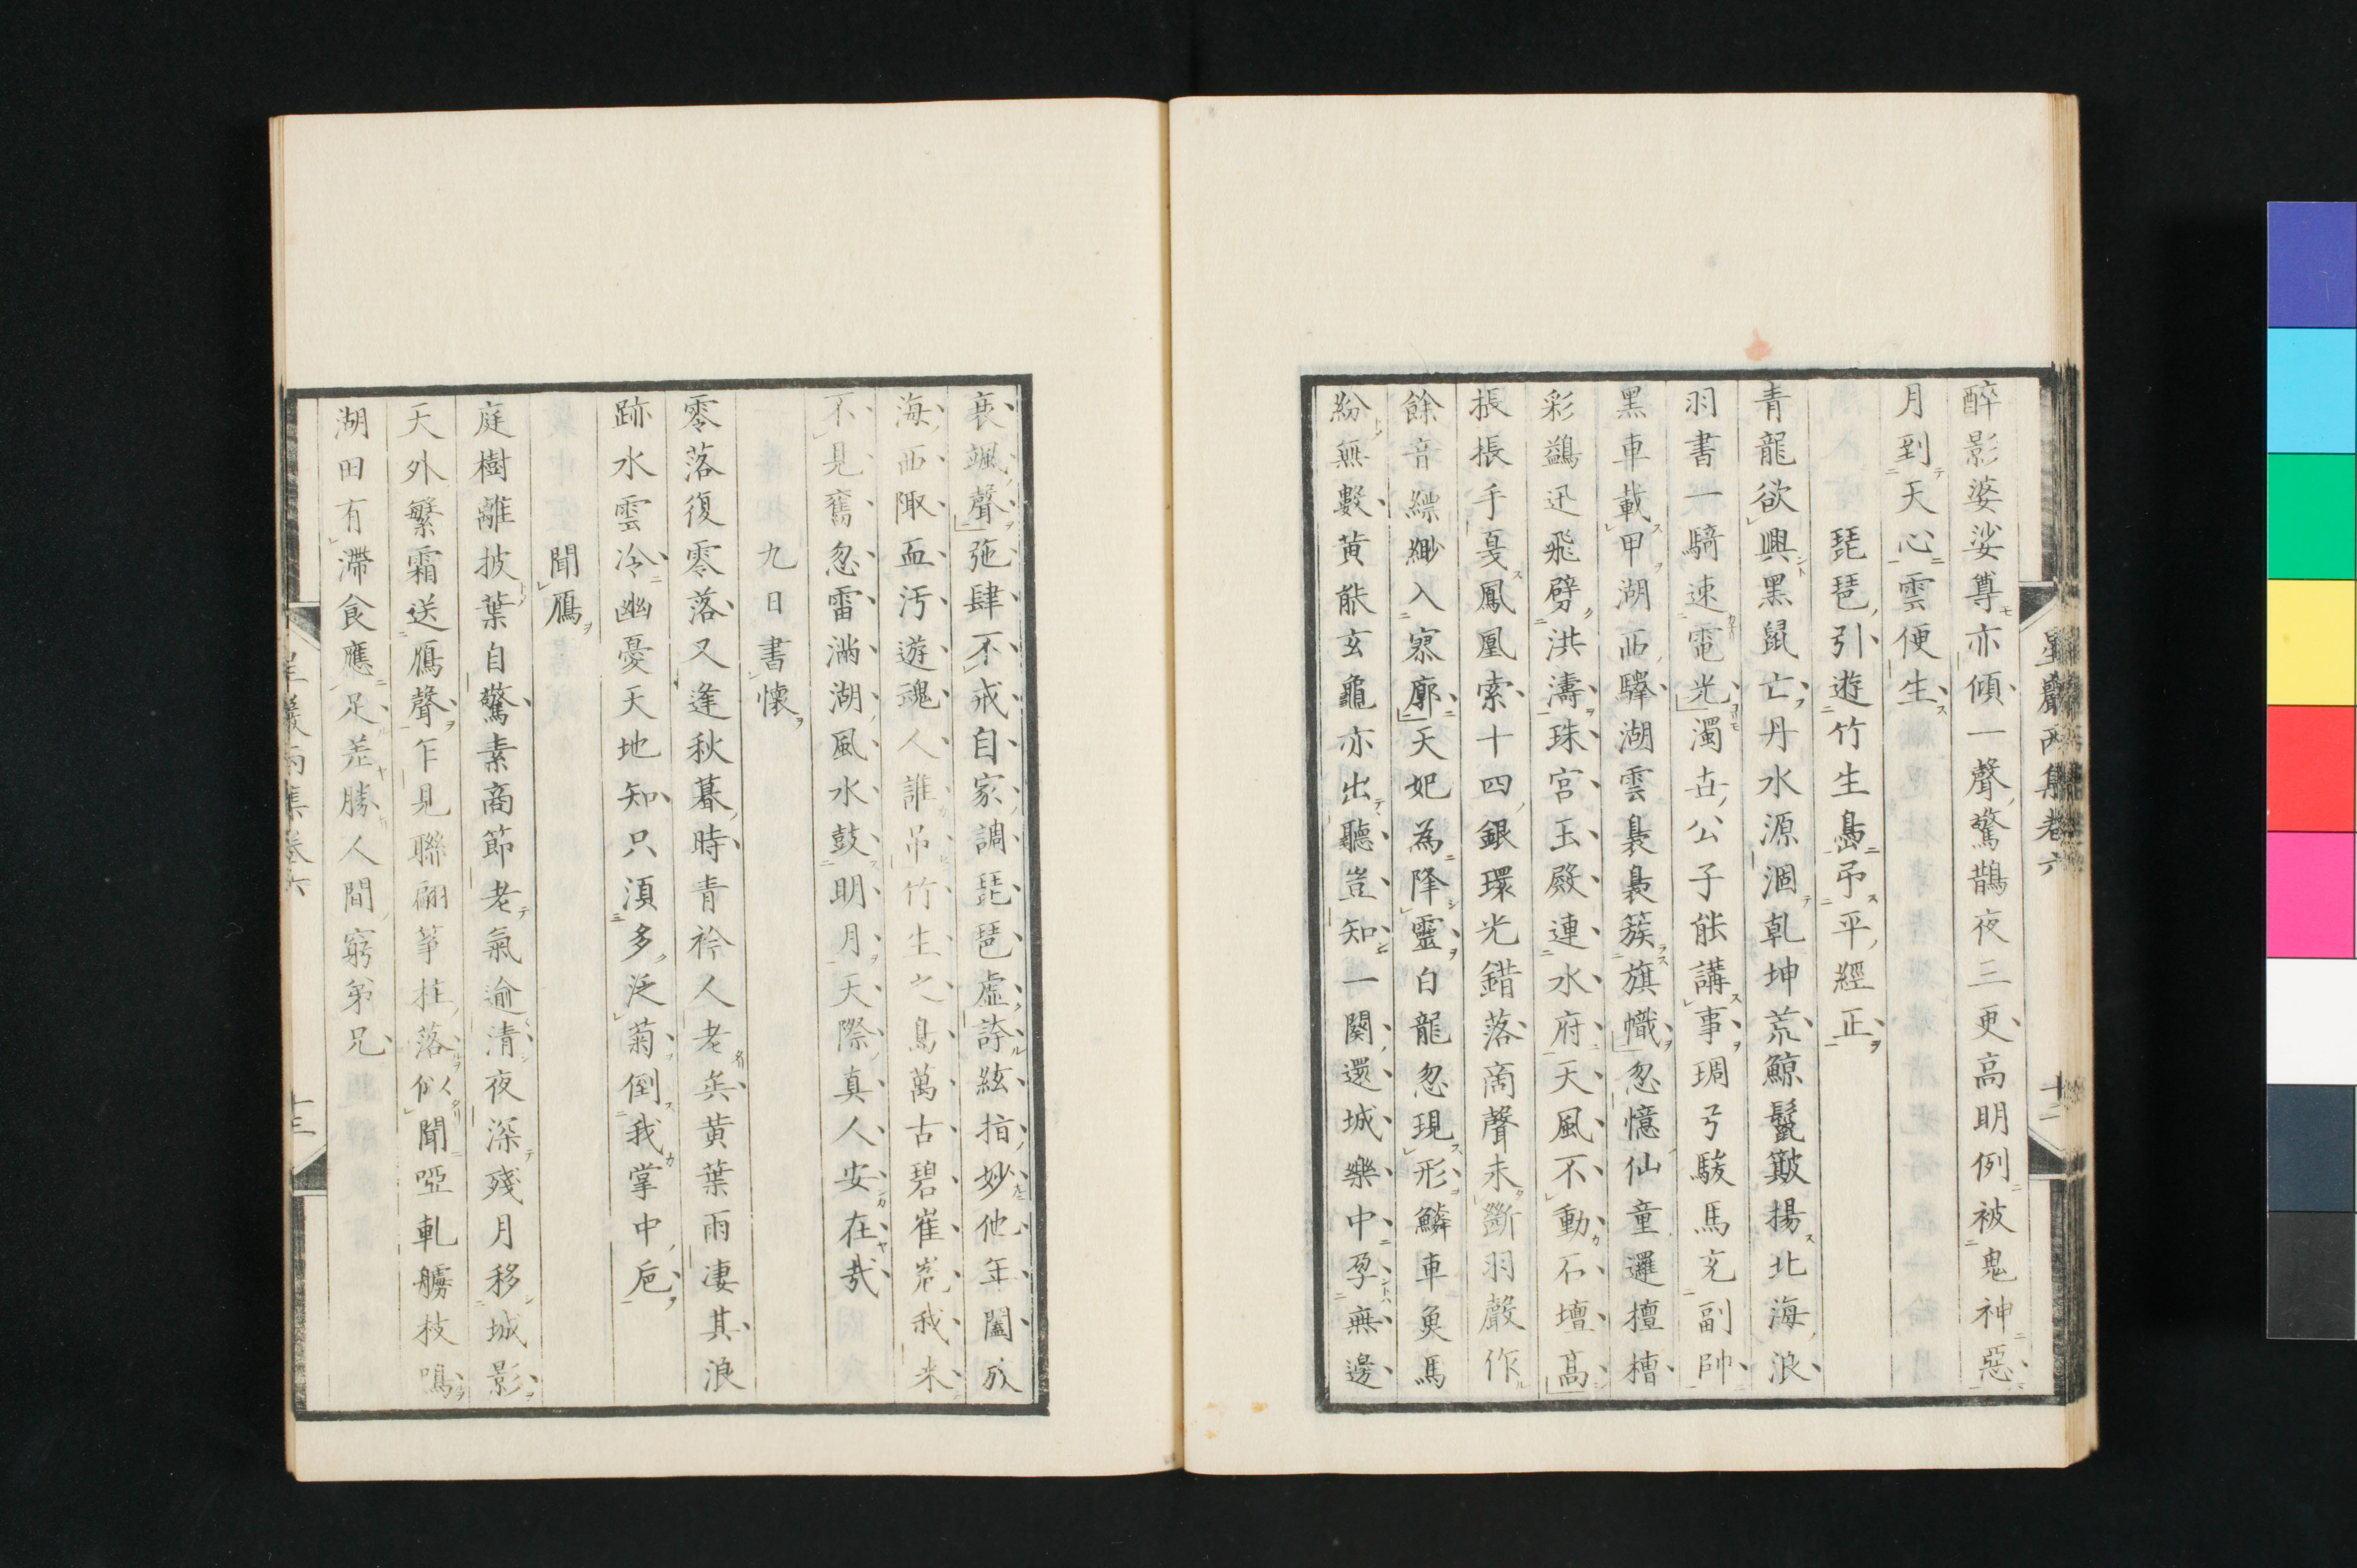 醉影婆娑尊亦傾一聲驚鵲夜三更高明例被鬼神惡
月到天心雲便生
琵琶引遊竹生島弔平經正
青龍欲興黑鼠亡丹水源涸乾坤荒鯨鬣簸揚北海浪
羽書一騎速電光濁世公子能講事琱弓駿馬充副帥
黑車載甲湖西驛湖雲裊裊簇旗幟忽憶仙童邏檀槽
彩鷁迅飛劈洪濤珠宮玉殿連水府天風不動石壇高
掁掁手戛鳳凰索十四銀環光錯落商聲未斷羽聲作
餘音縹緲入寥廓天妃為降靈白龍忽現形鱗車魚馬
紛無數黃能玄龜亦出聽豈知一闋還城樂中孕無邊
星巖丙集卷六
十二
衰颯聲弛肆不戒自家調琵琶虛誇絃指妙他年闔族
海西陬血汚遊魂人誰弔竹生之島萬古碧崔嵬我來
不見舊忽雷滿湖風水鼓明月天際真人安在哉
九日書懷
零落復零落又逢秋暮時青衿人老矣黃葉雨凄其浪
跡水雲冷幽憂天地知只須多泛菊倒我掌中卮
聞鴈
庭樹離披葉自驚素商節老氣逾清夜深殘月移城影
天外繁霜送鴈聲乍見聯翩箏柱落似聞啞軋艣枝鳴
湖田有滯食應足差勝人間窮弟兄
星巖丙集卷六
十三